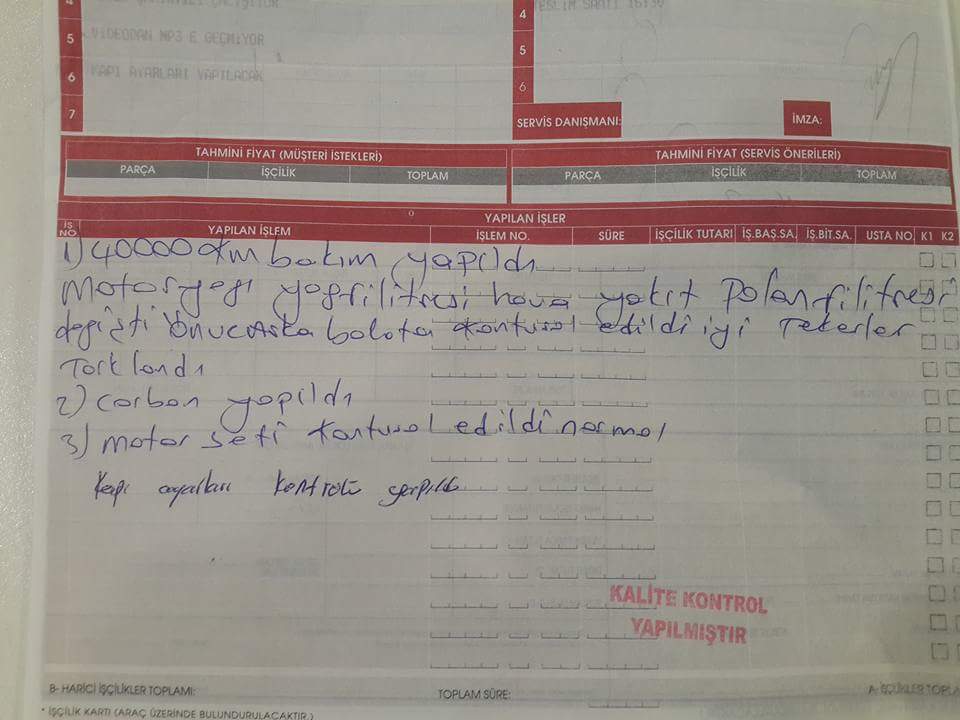 4 ÇALIŞIYOR
4 TESLİM SAATİ 16:30
5 VİDEODAN MP3 E GEÇMİYOR
5
6 KAPI AYARLARI YAPILACAK
6
7
SERVİS DANIŞMANI: İMZA:
TAHMİNİ FİYAT (MÜŞTERİ İSTEKLERİ) TAHMİNİ FİYAT (SERVİS ÖNERİLERİ)
PARÇA İŞÇİLİK TOPLAM PARÇA İŞÇİLİK TOPLAM
YAPILAN İŞLER
İŞ NO YAPILAN İŞLEM İŞLEM NO. SÜRE İŞÇİLİK TUTARI İŞ.BAŞ.SA. İŞ.BİT.SA. USTA NO K1 K2
1) 40000 km bakım yapıldı
Motor yegı yogfilitresi hava yakıt Polen filitresi
degişti ön ucarka balata konturol edildi iyi Tekerler
Torklandı
2) carbon yapıldı
3) motor seti konturol edildi normal
Kapı ayarları kontrolü yapıldı
KALİTE KONTROL
YAPILMIŞTIR
B- HARİCİ İŞÇİLİKLER TOPLAMI: TOPLAM SÜRE: A- İŞÇİLİKLER
* İŞÇİLİK KARTI (ARAÇ ÜZERİNDE BULUNDURULACAKTIR.)